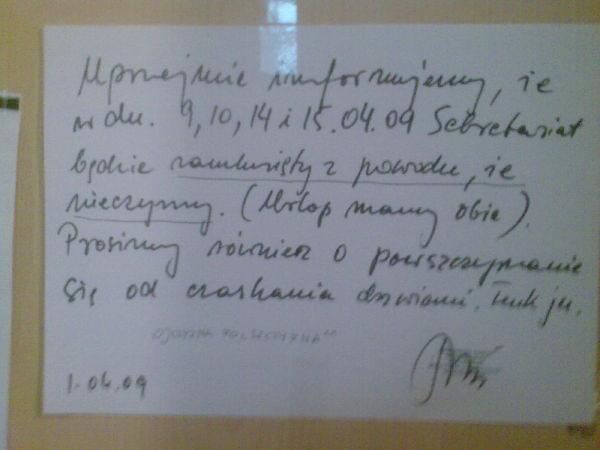 Uprzejmie informujemy, że
w dn. 9, 10, 14 i 15.04.09 Sekretariat
będzie zamknięty z powodu, że
nieczynny. (Urlop mamy obie).
Prosimy również o powszczymanie
się od czaskania dzwiami. Tenk ju.
OJCZYZNA POLSZCZYZNA"
1.04.09